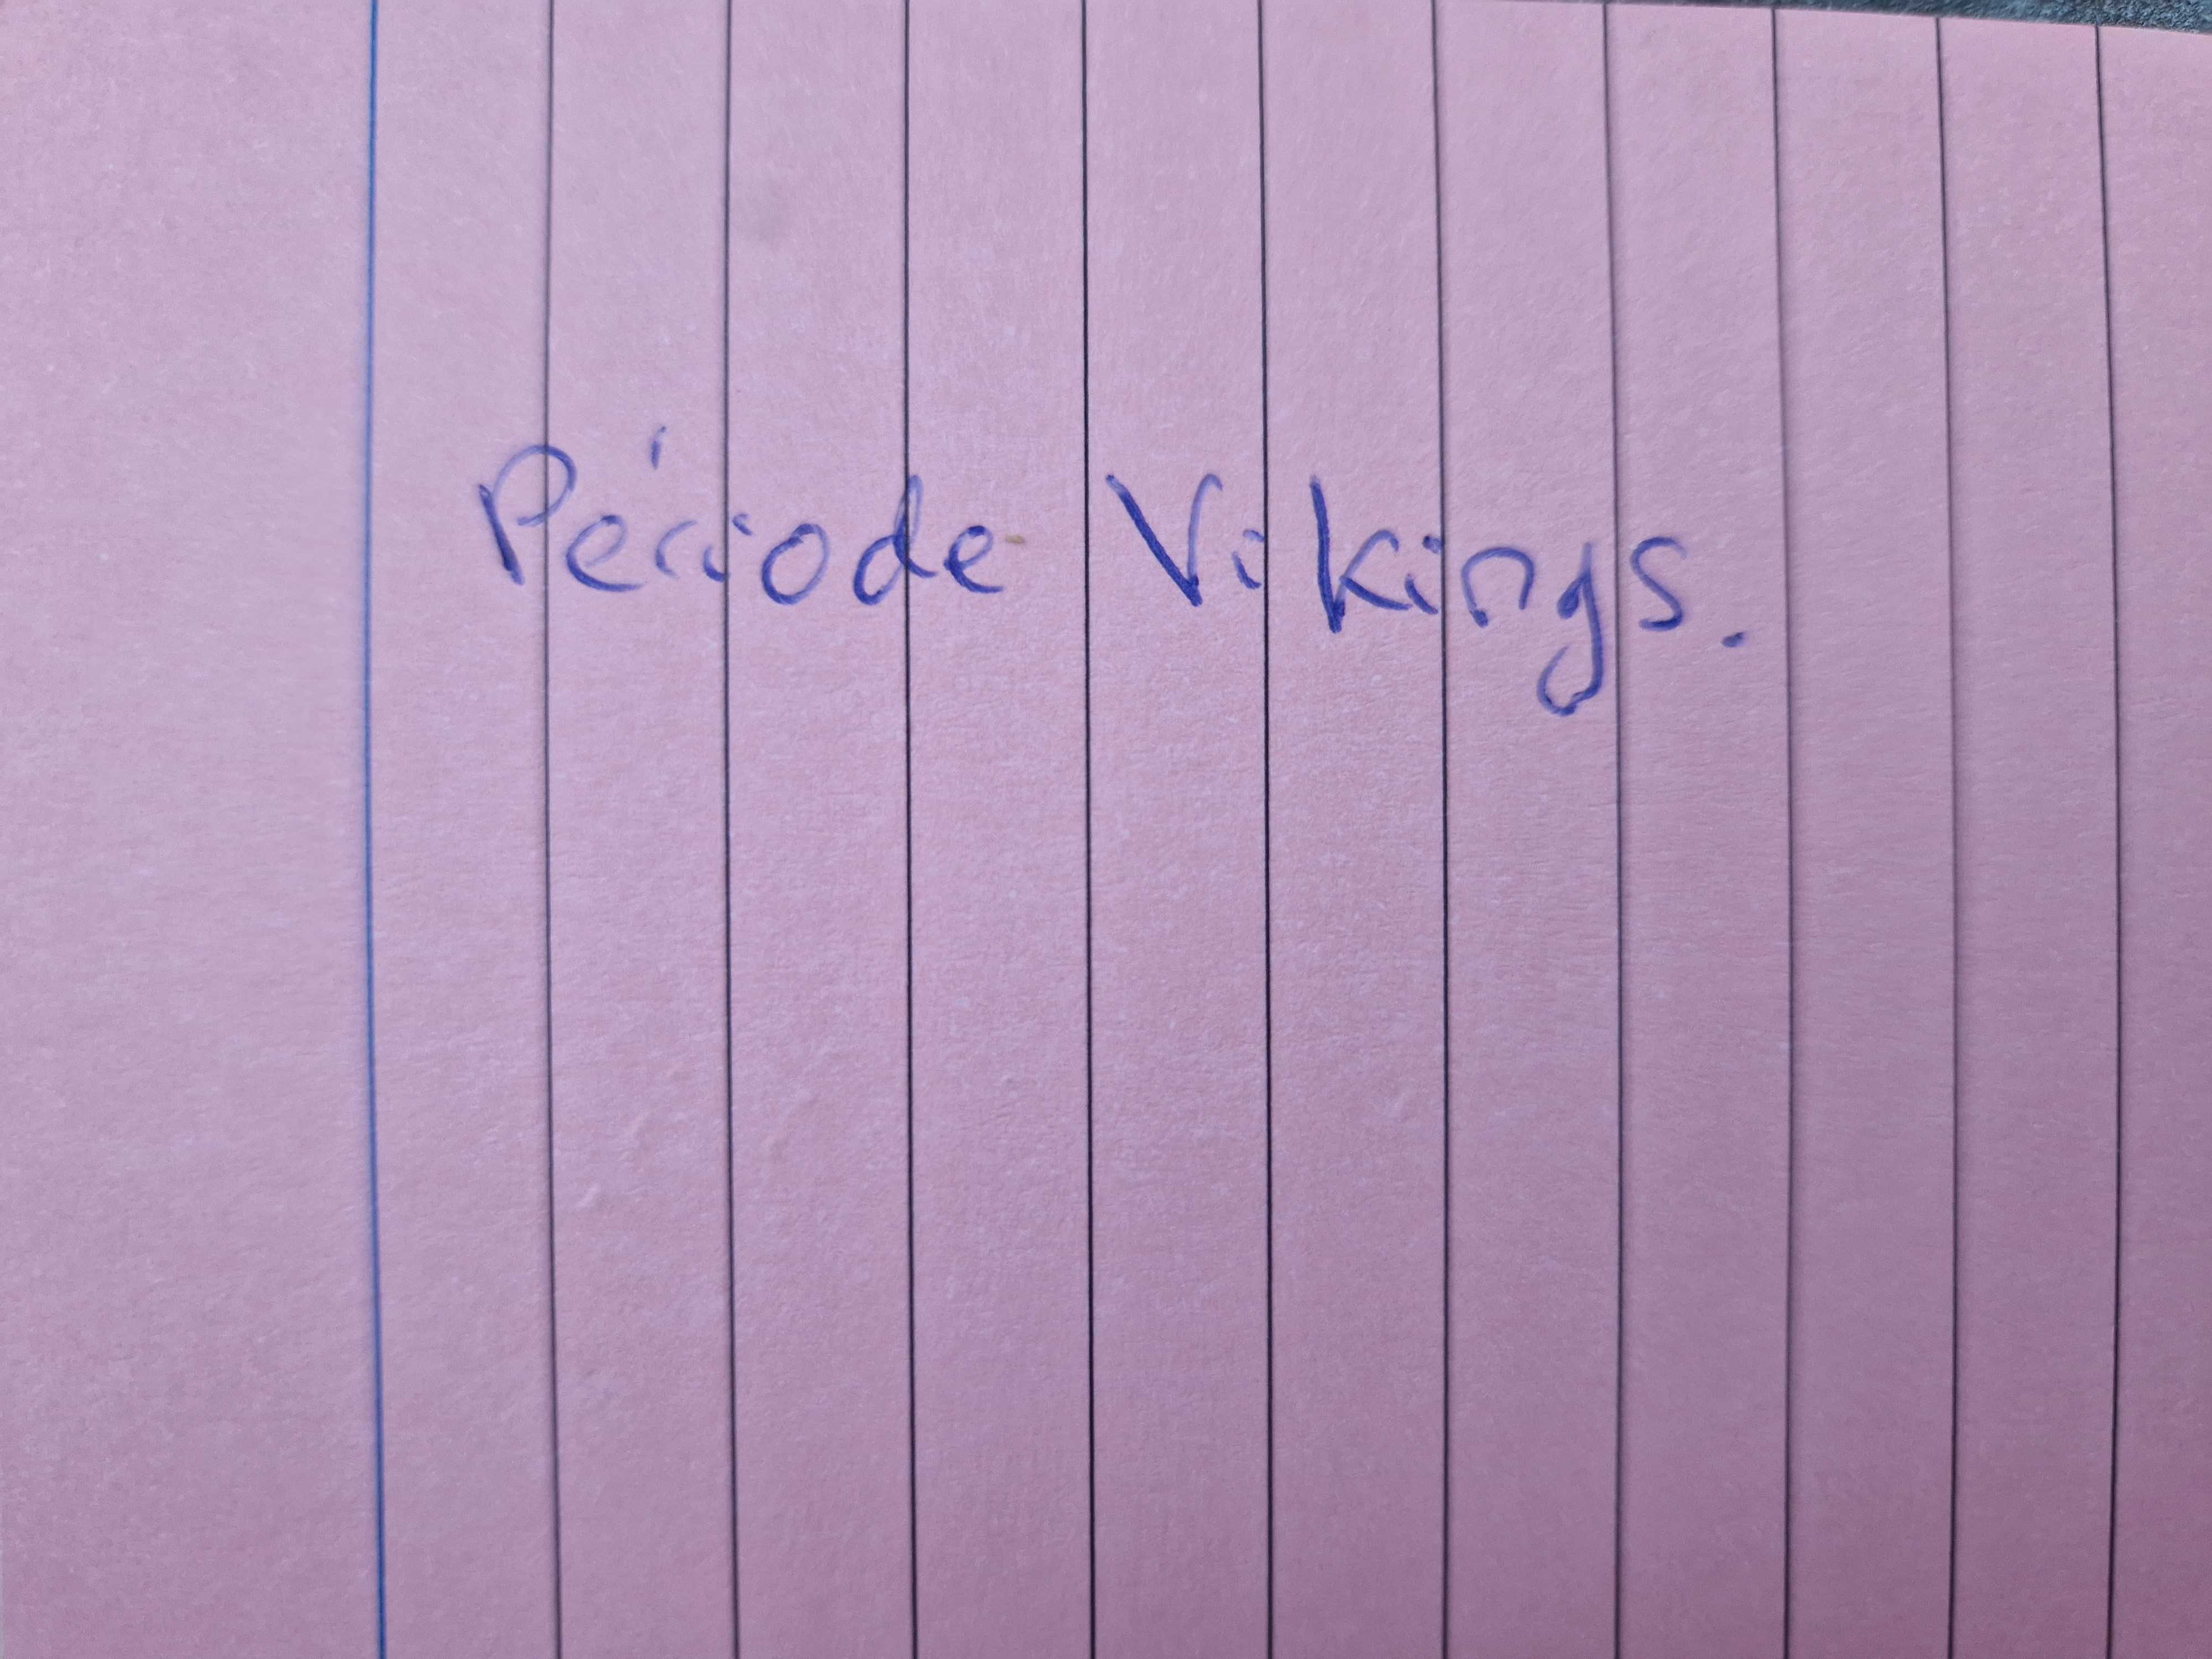 Période Vikings.